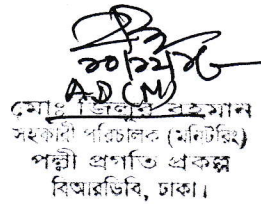 AD (M)
মোঃ জিলুর রহমান
সহকারী পরিচালক (মনিটরিং)
পল্লী প্রগতি প্রকল্প
বিআরডিবি, ঢাকা।